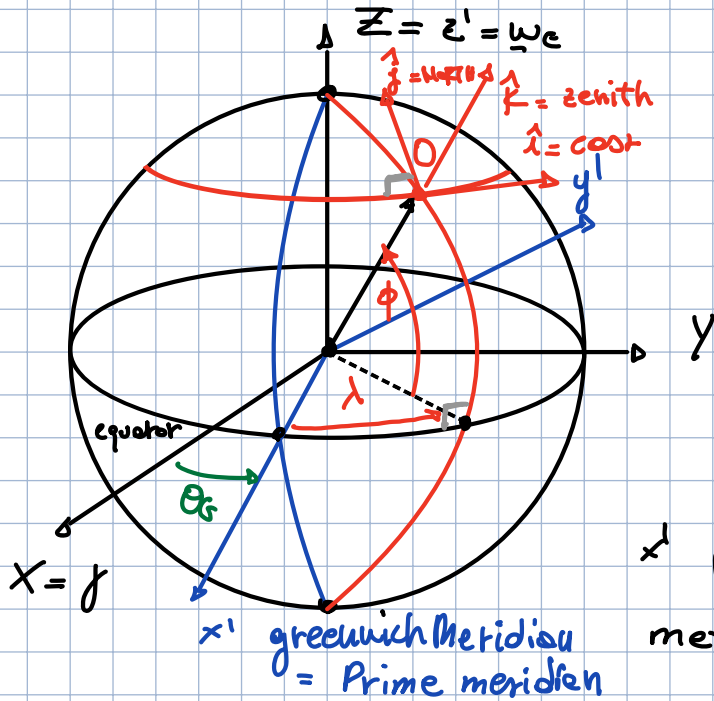 Z = z' = ωe
ĵ = North
k̂ = zenith
O
î = east
y'
ϕ
Y
λ
equator
θG
x'
X = γ
x' greenwich Meridian
= Prime meridian
me